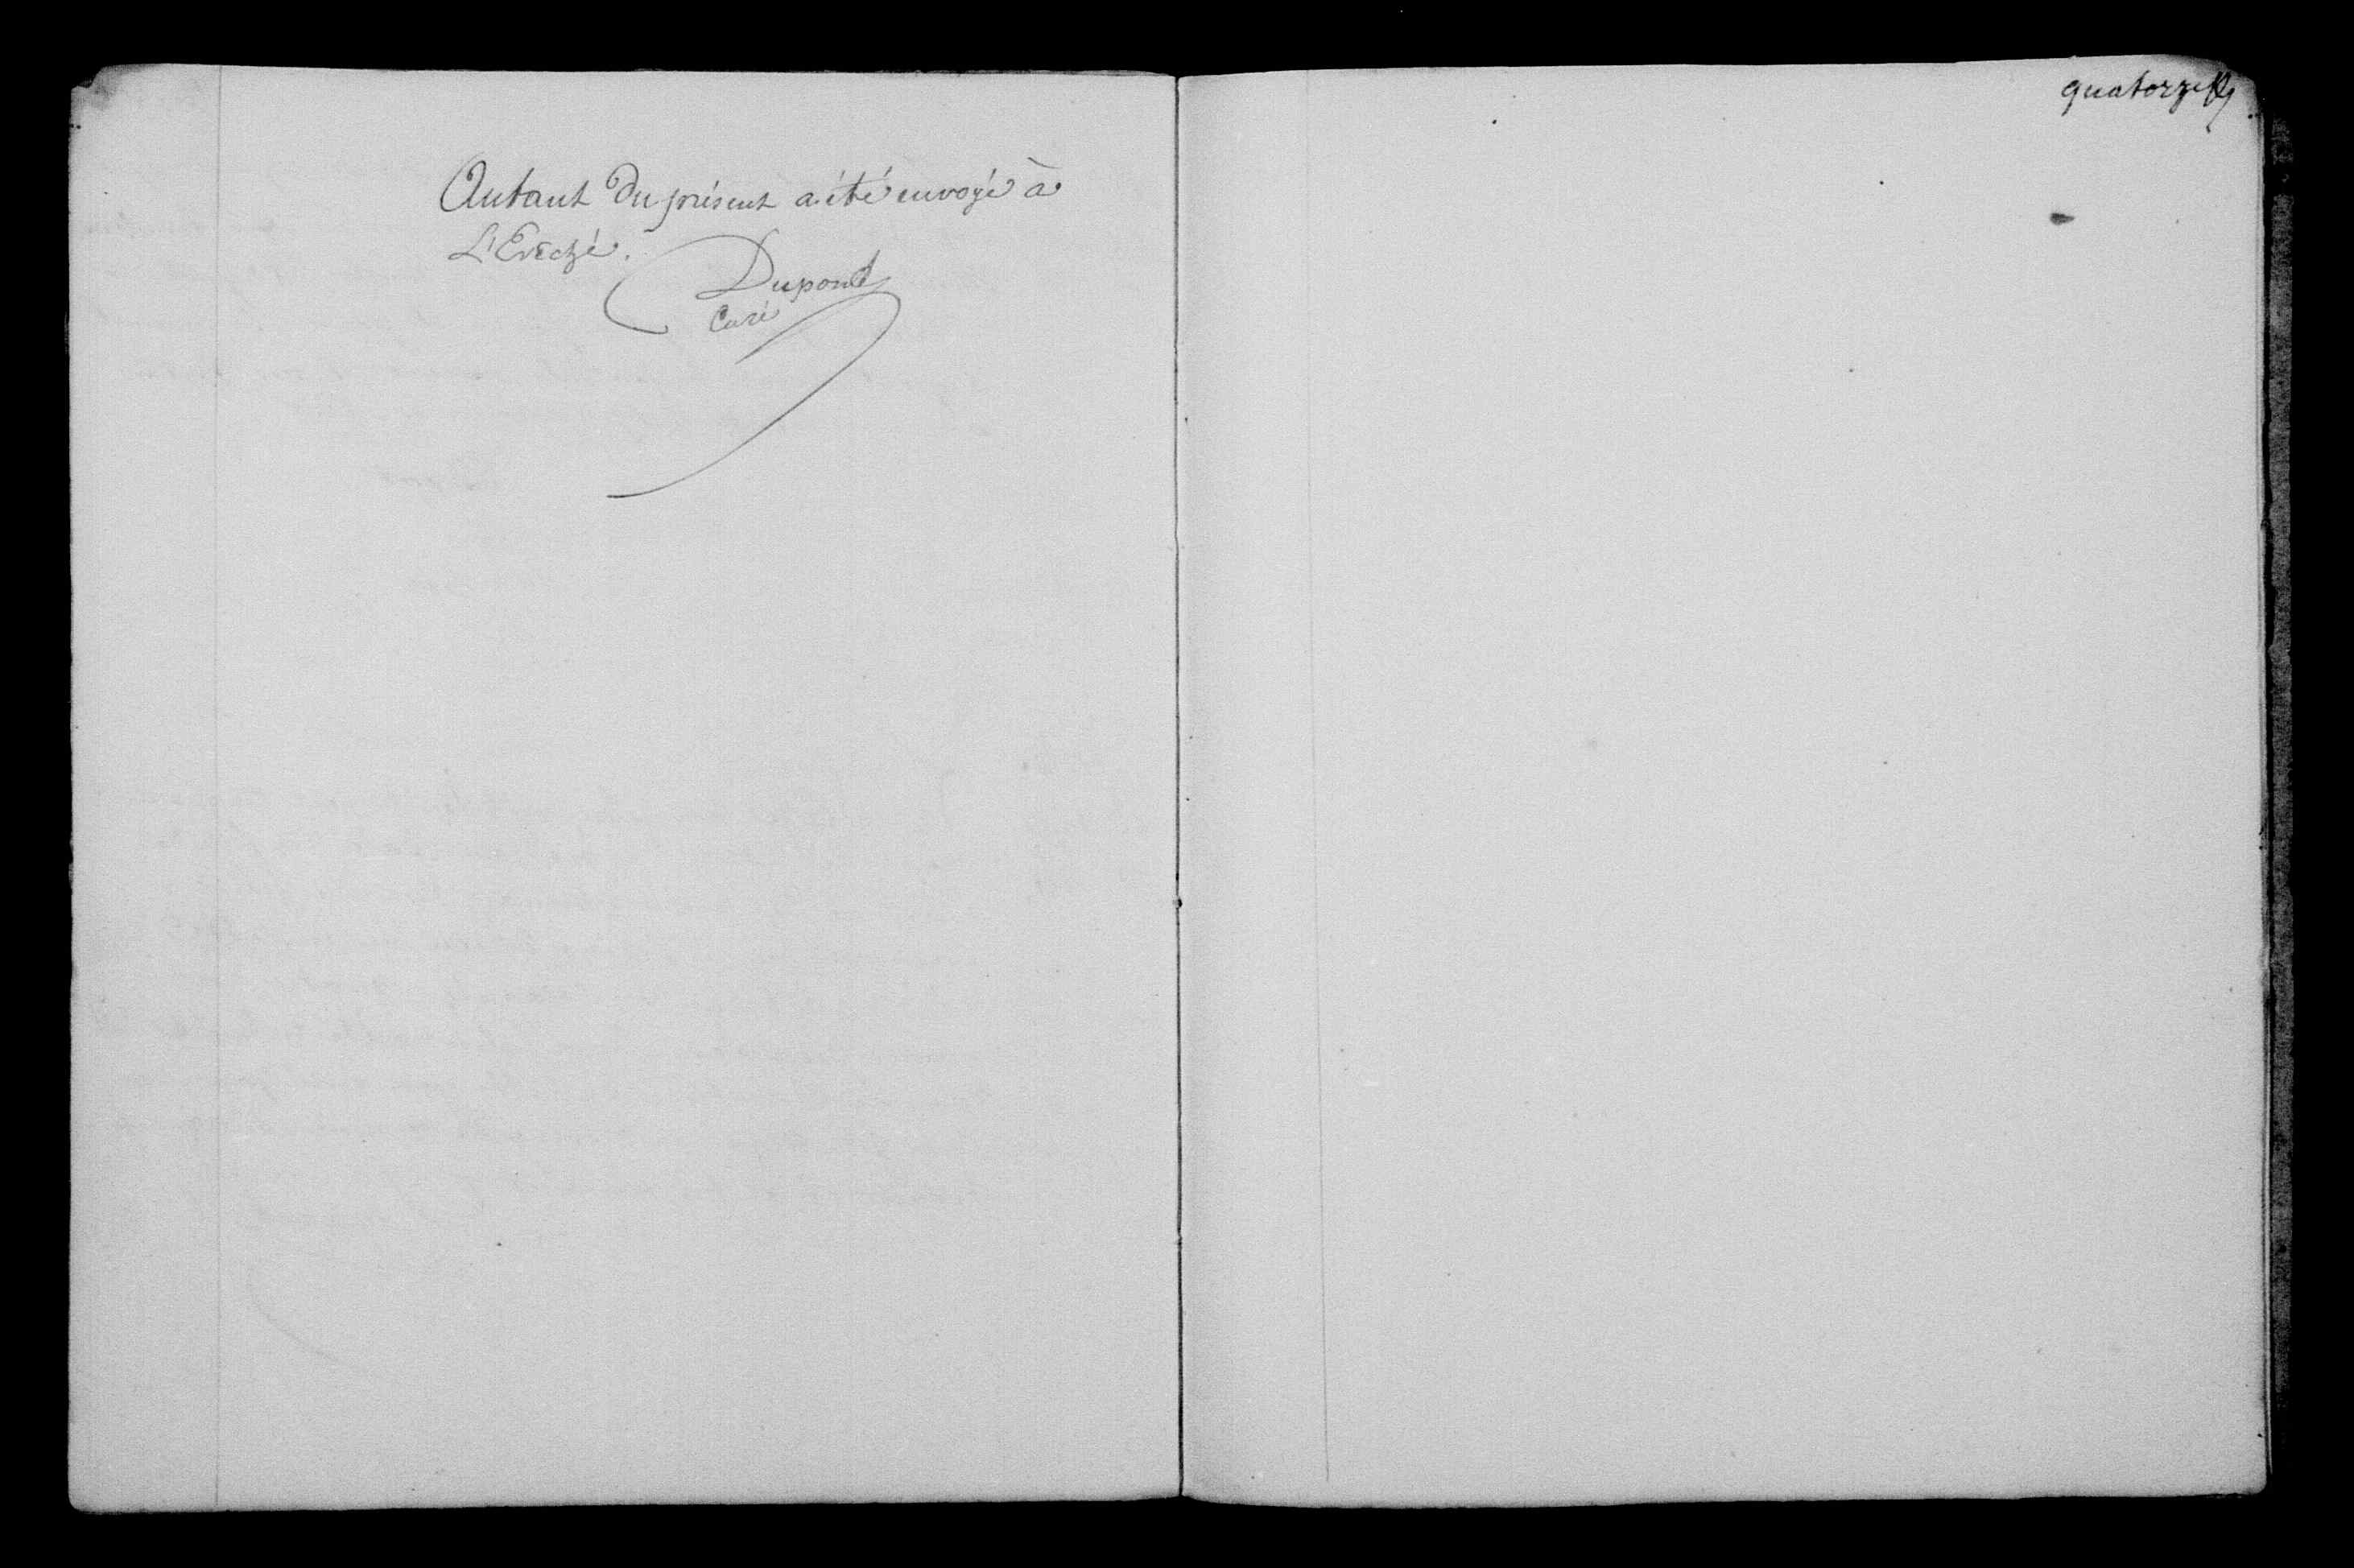 Autant du présent a été envoyé à
L'Evêché.
Dupont
Curé
quatorze